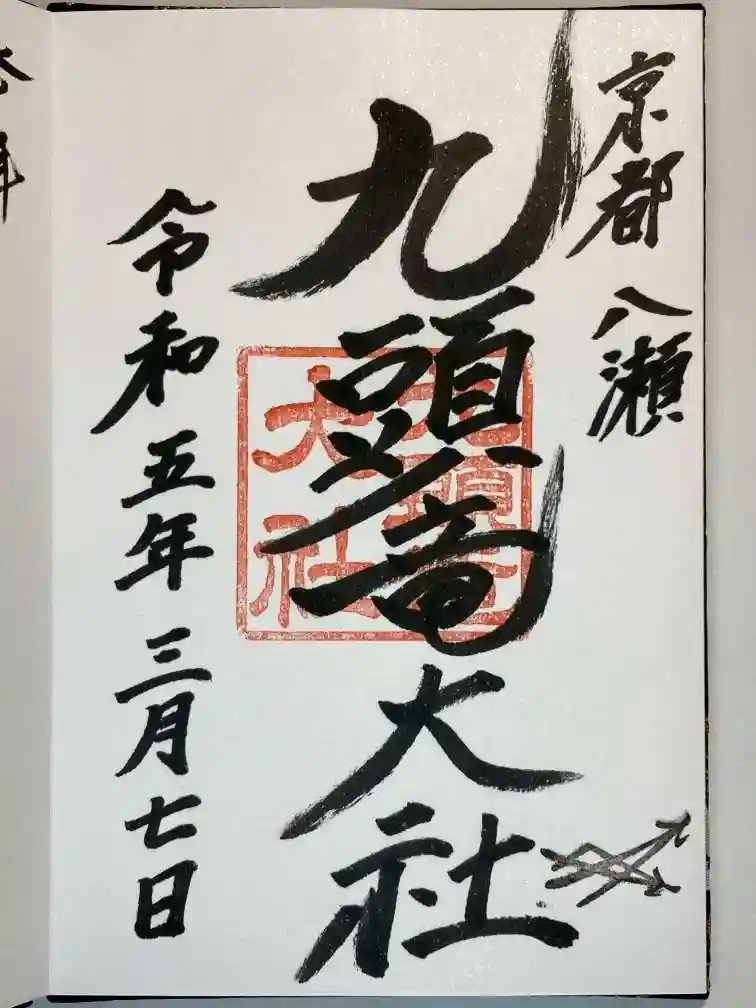 京都 八瀬
九頭竜大社
九頭竜
大社
令和五年 三月七日